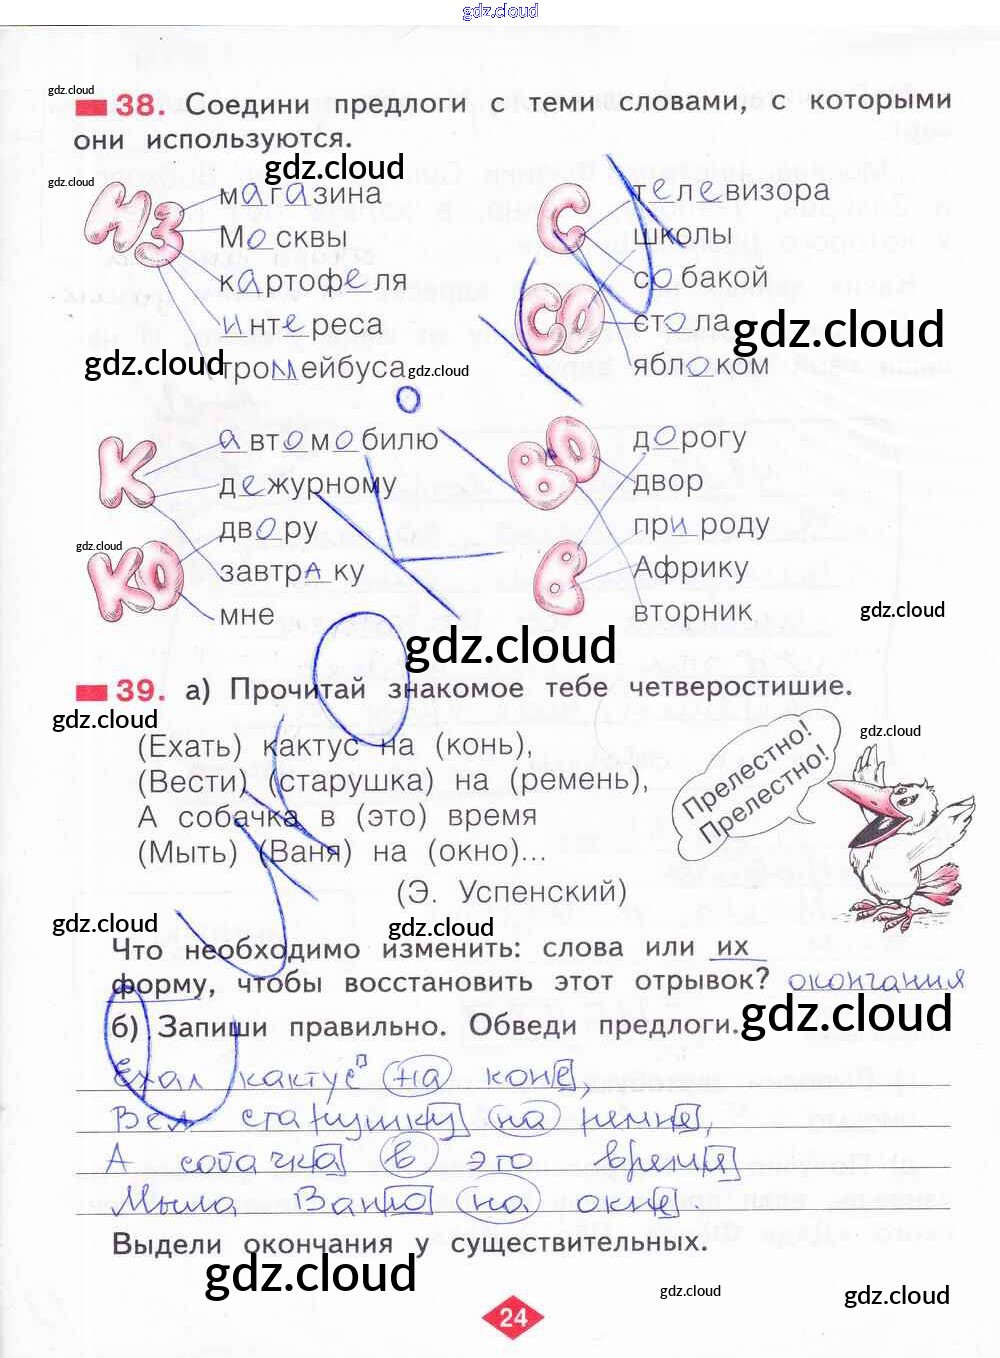 gdz.cloud
gdz.cloud
38. Соедини предлоги с теми словами, с которыми
они используются.
gdz.cloud
gdz.cloud
ИЗ
магазина
Москвы
картофеля
интереса
тромейбуса
С
СО
телевизора
школы
собакой
стола
яблоком
gdz.cloud
gdz.cloud
gdz.cloud
К
КО
автомобилю
дежурному
двору
завтраку
мне
ВО
В
дорогу
двор
природу
Африку
вторник
gdz.cloud
gdz.cloud
gdz.cloud
39. а) Прочитай знакомое тебе четверостишие.
gdz.cloud
(Ехать) кактус на (конь),
(Вести) (старушка) на (ремень),
А собачка в (это) время
(Мыть) (Ваня) на (окно)...
(Э. Успенский)
Прелестно!
Прелестно!
gdz.cloud
gdz.cloud
gdz.cloud
Что необходимо изменить: слова или их
форму, чтобы восстановить этот отрывок? окончания
gdz.cloud
б) Запиши правильно. Обведи предлоги.
Ехал кактус на коне,
Вел старушку на ремне,
А собачка в это время
Мыла Ваню на окне.
Выдели окончания у существительных.
gdz.cloud
gdz.cloud
gdz.cloud
24